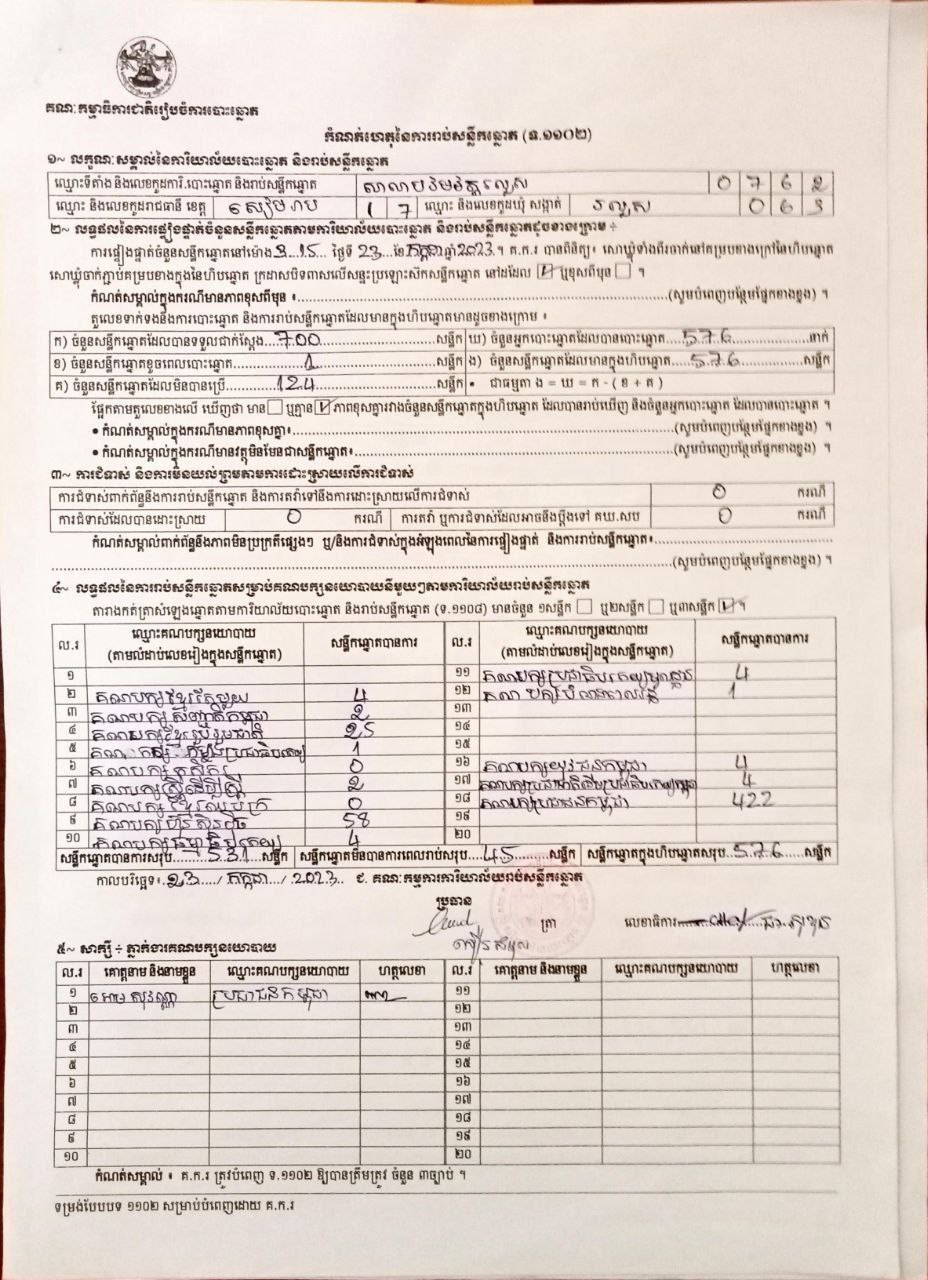 គណៈកម្មាធិការជាតិរៀបចំការបោះឆ្នោត
កំណត់ហេតុនៃការរាប់សន្លឹកឆ្នោត (ទ.១១០២)
១~ លក្ខណៈសម្គាល់នៃការិយាល័យបោះឆ្នោត និងរាប់សន្លឹកឆ្នោត
ឈ្មោះទីតាំង និងលេខកូដការិ.បោះឆ្នោត និងរាប់សន្លឹកឆ្នោត សាលាបឋមវត្តរលួស 0 7 6 2
ឈ្មោះ និងលេខកូដរាជធានី ខេត្ត សៀមរាប 1 7 ឈ្មោះ និងលេខកូដឃុំ សង្កាត់ រលួស 0 6 3
២~ លទ្ធផលនៃការផ្ទៀងផ្ទាត់ចំនួនសន្លឹកឆ្នោតតាមការិយាល័យបោះឆ្នោត និងរាប់សន្លឹកឆ្នោតដូចខាងក្រោម ÷
ការផ្ទៀងផ្ទាត់ចំនួនសន្លឹកឆ្នោតនៅម៉ោង 3.15 ថ្ងៃទី 23 ខែ កក្កដា ឆ្នាំ 2023 ។ គ.ក.រ បានពិនិត្យ៖ សោឃ្លុំទាំងពីរចាក់នៅគម្របខាងក្រៅនៃហិបឆ្នោត
សោឃ្លុំចាក់ភ្ជាប់គម្របខាងក្នុងនៃហិបឆ្នោត ក្រដាសបិទពាសលើសន្ទះប្រឡោះស៊កសន្លឹកឆ្នោត នៅដដែល ☑ ឬខុសពីមុន ☐ ។
កំណត់សម្គាល់ក្នុងករណីមានភាពខុសពីមុន ៖ (សូមបំពេញបន្ថែមផ្នែកខាងខ្នង) ។
តួលេខទាក់ទងនឹងការបោះឆ្នោត និងការរាប់សន្លឹកឆ្នោតដែលមានក្នុងហិបឆ្នោតមានដូចខាងក្រោម ៖
ក) ចំនួនសន្លឹកឆ្នោតដែលបានទទួលជាក់ស្តែង 700 សន្លឹក ឃ) ចំនួនអ្នកបោះឆ្នោតដែលបានបោះឆ្នោត 576 នាក់
ខ) ចំនួនសន្លឹកឆ្នោតខូចពេលបោះឆ្នោត 1 សន្លឹក ង) ចំនួនសន្លឹកឆ្នោតដែលមានក្នុងហិបឆ្នោត 576 សន្លឹក
គ) ចំនួនសន្លឹកឆ្នោតដែលមិនបានប្រើ 124 សន្លឹក • ជាធម្មតា ង = ឃ = ក - ( ខ + គ )
ផ្អែកតាមតួលេខខាងលើ ឃើញថា មាន ☐ ឬគ្មាន ☑ ភាពខុសគ្នារវាងចំនួនសន្លឹកឆ្នោតក្នុងហិបឆ្នោត ដែលបានរាប់ឃើញ និងចំនួនអ្នកបោះឆ្នោត ដែលបានបោះឆ្នោត ។
• កំណត់សម្គាល់ក្នុងករណីមានភាពខុសគ្នា៖ (សូមបំពេញបន្ថែមផ្នែកខាងខ្នង) ។
• កំណត់សម្គាល់ក្នុងករណីមានវត្ថុមិនមែនជាសន្លឹកឆ្នោត៖ (សូមបំពេញបន្ថែមផ្នែកខាងខ្នង) ។
៣~ ការជំទាស់ និងការមិនយល់ព្រមតាមការដោះស្រាយលើការជំទាស់
ការជំទាស់ពាក់ព័ន្ធនឹងការរាប់សន្លឹកឆ្នោត និងការតវ៉ាទៅនឹងការដោះស្រាយលើការជំទាស់ 0 ករណី
ការជំទាស់ដែលបានដោះស្រាយ 0 ករណី ការតវ៉ា ឬការជំទាស់ដែលអាចនឹងប្តឹងទៅ គឃ.សប 0 ករណី
កំណត់សម្គាល់ពាក់ព័ន្ធនឹងភាពមិនប្រក្រតីផ្សេងៗ ឬ/និងការជំទាស់ក្នុងអំឡុងពេលនៃការផ្ទៀងផ្ទាត់ និងការរាប់សន្លឹកឆ្នោត៖
(សូមបំពេញបន្ថែមផ្នែកខាងខ្នង) ។
៤~ លទ្ធផលនៃការរាប់សន្លឹកឆ្នោតសម្រាប់គណបក្សនយោបាយនីមួយៗតាមការិយាល័យរាប់សន្លឹកឆ្នោត
តារាងកត់ត្រាសំឡេងឆ្នោតតាមការិយាល័យបោះឆ្នោត និងរាប់សន្លឹកឆ្នោត (ទ.១១០៨) មានចំនួន ១សន្លឹក ☐ ឬ២សន្លឹក ☐ ឬ៣សន្លឹក ☑ ។
ល.រ ឈ្មោះគណបក្សនយោបាយ (តាមលំដាប់លេខរៀងក្នុងសន្លឹកឆ្នោត) សន្លឹកឆ្នោតបានការ ល.រ ឈ្មោះគណបក្សនយោបាយ (តាមលំដាប់លេខរៀងក្នុងសន្លឹកឆ្នោត) សន្លឹកឆ្នោតបានការ
១ ១១ គណបក្សប្រជាធិបតេយ្យមូលដ្ឋាន 4
២ គណបក្សខ្មែរតែមួយ 4 ១២ គណបក្ស 1
៣ គណបក្ស សញ្ជាតិកម្ពុជា 2 ១៣
៤ គណបក្សខ្មែររួបរួមជាតិ 25 ១៤
៥ គណបក្ស សំបុកឃ្មុំប្រជាធិបតេយ្យ 1 ១៥
៦ គណបក្ស កសិករ 0 ១៦ គណបក្សយុវជនកម្ពុជា 4
៧ គណបក្សស្ត្រីដើម្បីស្ត្រី 2 ១៧ គណបក្ស 4
៨ គណបក្ស ខ្មែរឈប់ក្រ 0 ១៨ គណបក្សប្រជាជនកម្ពុជា 422
៩ គណបក្សហ៊្វុនស៊ិនប៉ិច 58 ១៩
១០ គណបក្សធម្មាធិបតេយ្យ 4 ២០
សន្លឹកឆ្នោតបានការសរុប 531 សន្លឹក សន្លឹកឆ្នោតមិនបានការពេលរាប់សរុប 45 សន្លឹក សន្លឹកឆ្នោតក្នុងហិបឆ្នោតសរុប 576 សន្លឹក
កាលបរិច្ឆេទ៖ 23 / កក្កដា / 2023 ជ. គណៈកម្មការការិយាល័យរាប់សន្លឹកឆ្នោត
ប្រធាន
ត្រា លេខាធិការ
៥~ សាក្សី ÷ ភ្នាក់ងារគណបក្សនយោបាយ
ល.រ គោត្តនាម និងនាមខ្លួន ឈ្មោះគណបក្សនយោបាយ ហត្ថលេខា ល.រ គោត្តនាម និងនាមខ្លួន ឈ្មោះគណបក្សនយោបាយ ហត្ថលេខា
១ អោម សុវណ្ណា ប្រជាជនកម្ពុជា ១១
២ ១២
៣ ១៣
៤ ១៤
៥ ១៥
៦ ១៦
៧ ១៧
៨ ១៨
៩ ១៩
១០ ២០
កំណត់សម្គាល់ ៖ គ.ក.រ ត្រូវបំពេញ ទ.១១០២ ឱ្យបានត្រឹមត្រូវ ចំនួន ៣ច្បាប់ ។
ទម្រង់បែបបទ ១១០២ សម្រាប់បំពេញដោយ គ.ក.រ